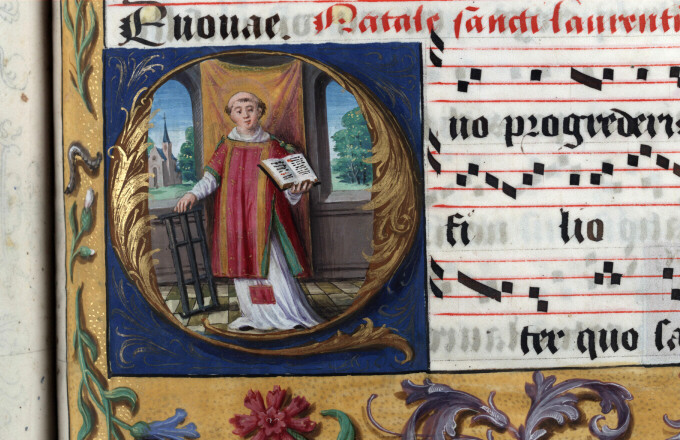 Euouae. Natale sancti laurenti
no progrederis
fi lio
ter quo sa